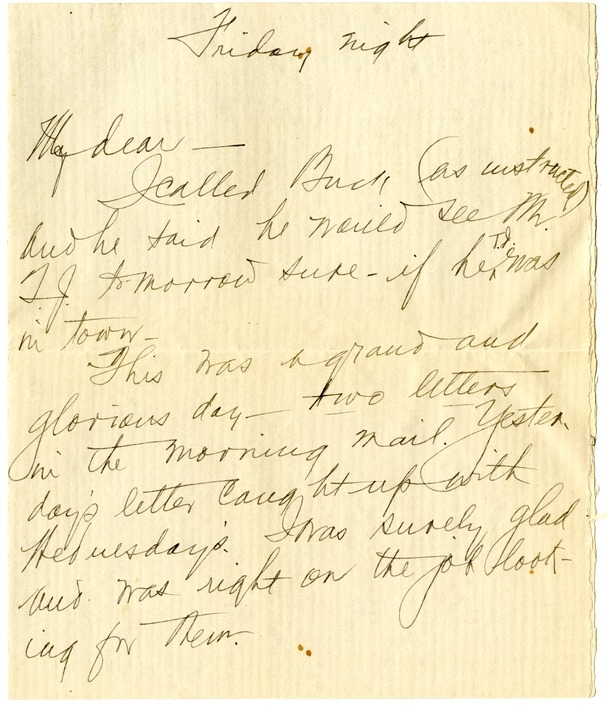 Friday night
My dear —
I called Buck (as instructed)
and he said he would see Mr.
T.J. tomorrow sure - if he, T.J., was
in town -
This was a grand and
glorious day — two letters
in the morning mail. Yester-
day's letter caught up with
Wednesday's. I was surely glad
and was right on the job look-
ing for them.